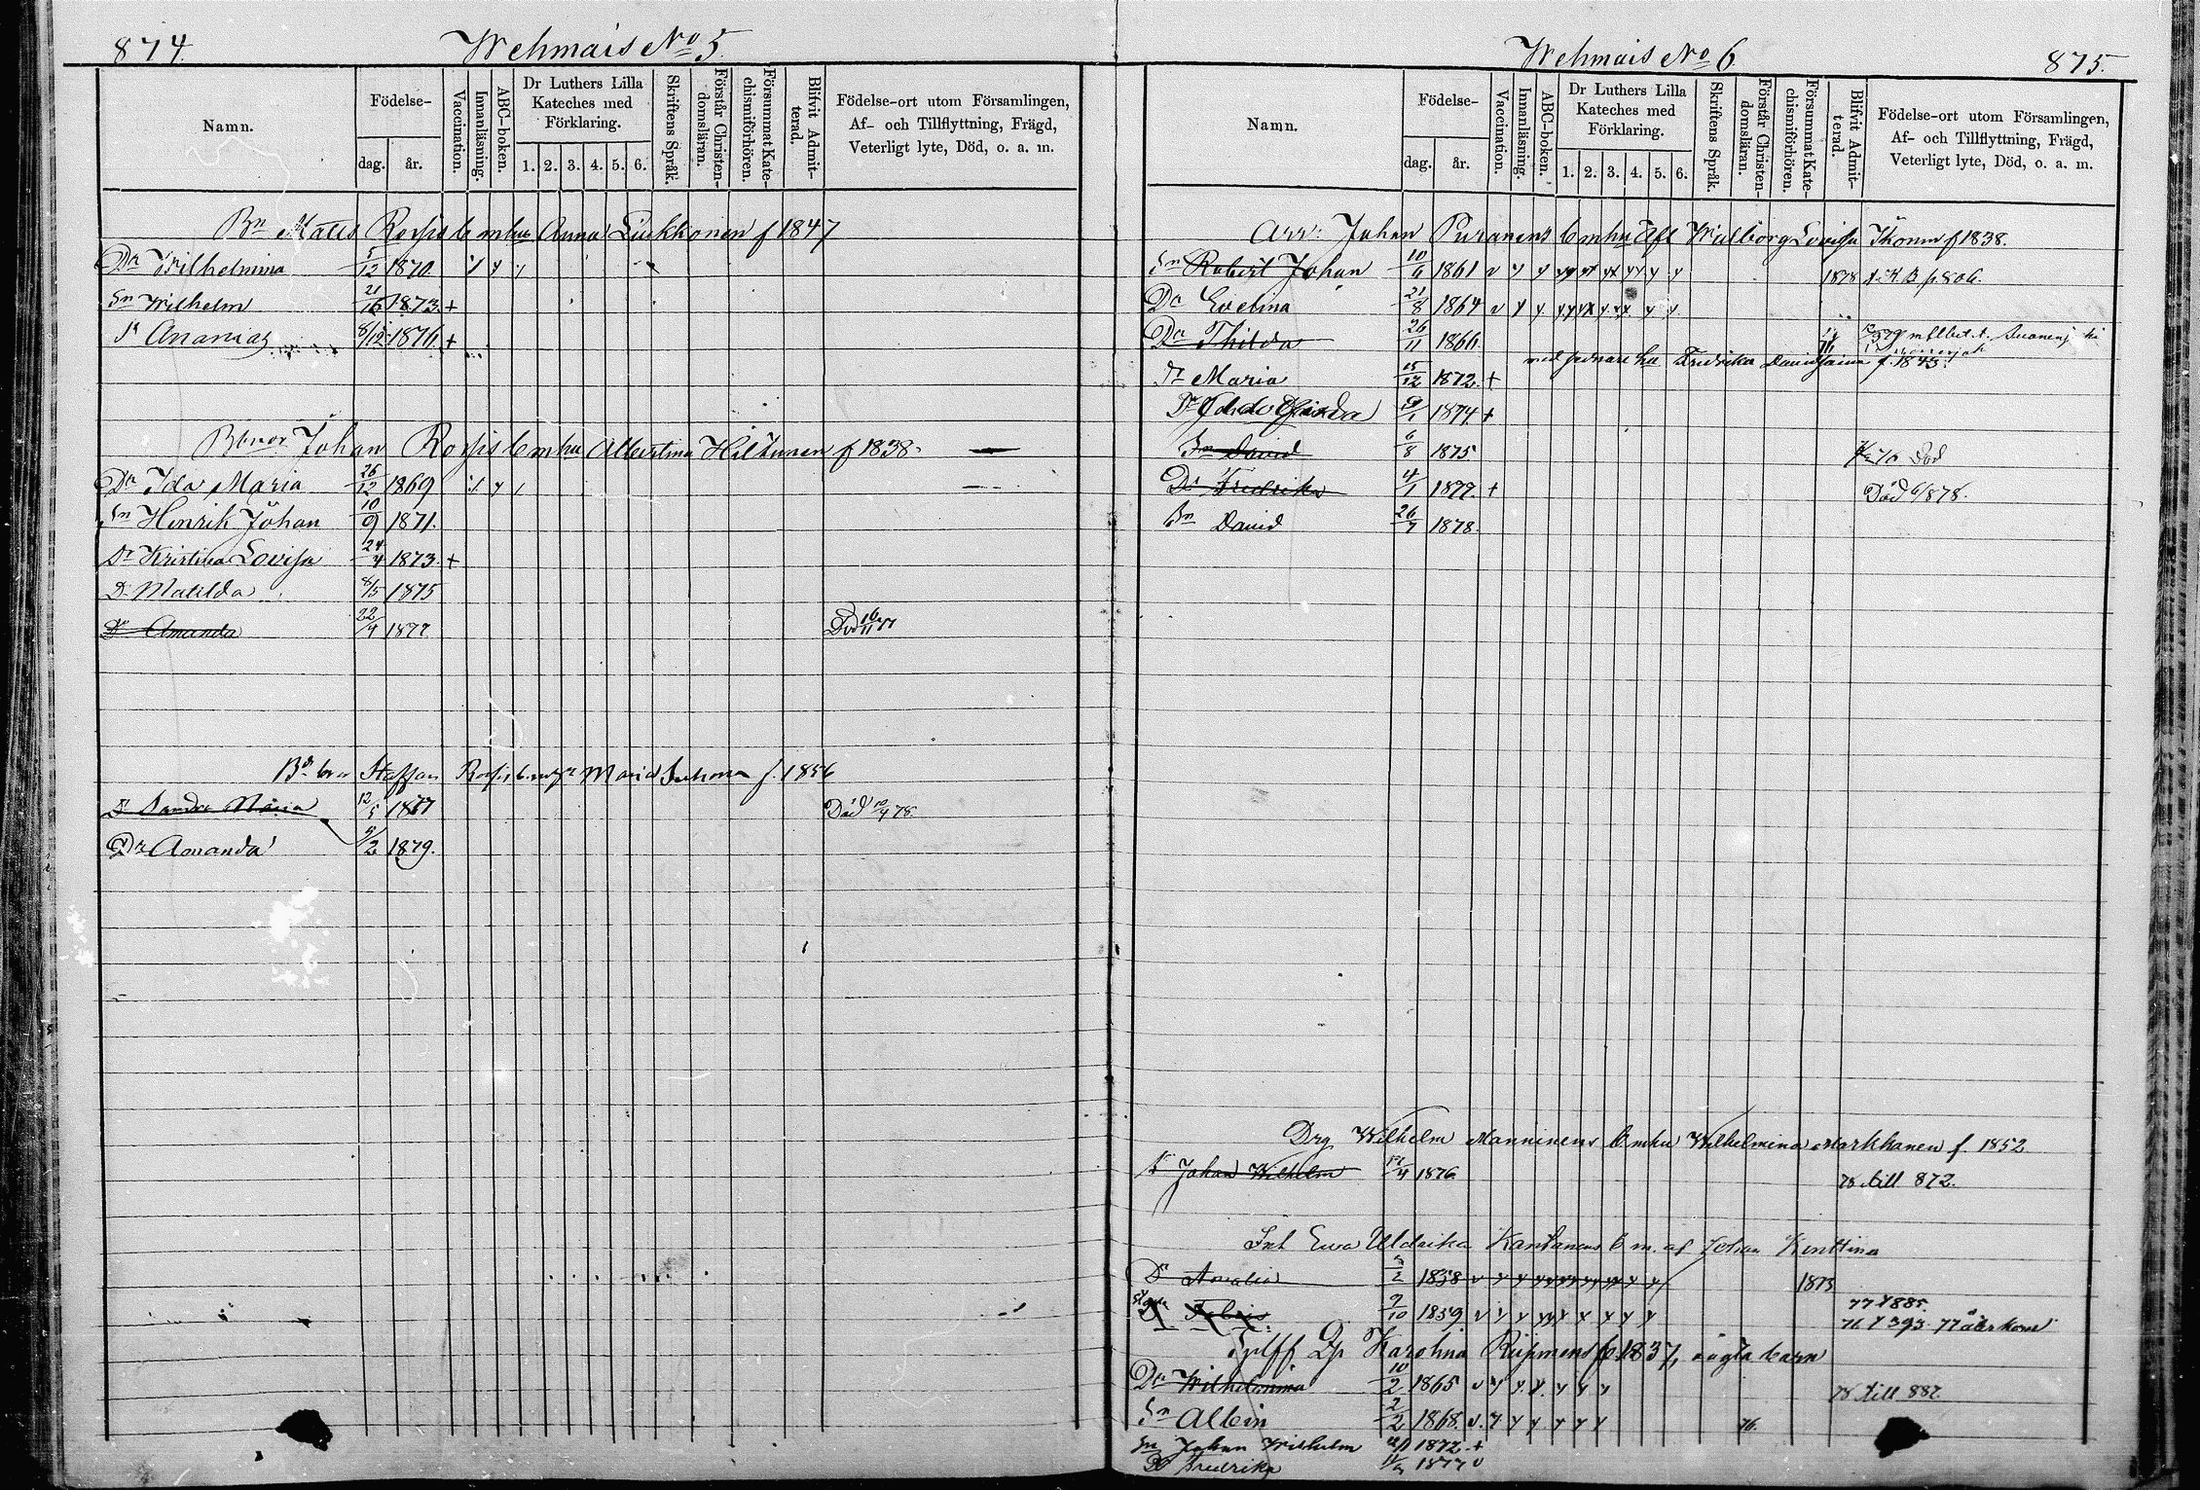 874.
Wehmais No 5.
Namn.
Födelse-
dag.
år.
Vaccination.
Innanläsning.
ABC-boken.
Dr Luthers Lilla Kateches med Förklaring.
1. 2. 3. 4. 5. 6.
Skriftens Språk.
Förstår Christendomsläran.
Försummat Katechismiförhören.
Blifvit Admitterad.
Födelse-ort utom Församlingen, Af- och Tillflyttning, Frägd, Veterligt lyte, Död, o. a. m.
Bn Matts Rossis b m hu Anna Liukkonen f 1847
Dr Wilhelmina 5/12 1870.
Sn Wilhelm 1873. +
Sn Ananias 8/12 1876. +
Johan Rossis b m hu Albertina Hiltunen f 1838.
Dr Ida Maria 26/12 1869
Sn Hinrik Johan 10/9 1871.
Dr Kristina Lovisa 24/4 1873. +
Dr Matilda 8/5 1875
Dr Amanda 22/4 1877 Död 16/11 77
Staffan Rossis b m hu Maria f. 1856
Dr Sandra Maria 12/5 1877 Död 10/4 78.
Dr Amanda 5/2 1879.
Wehmais No 6.
875.
Namn.
Födelse-
dag.
år.
Vaccination.
Innanläsning.
ABC-boken.
Dr Luthers Lilla Kateches med Förklaring.
1. 2. 3. 4. 5. 6.
Skriftens Språk.
Förstår Christendomsläran.
Försummat Katechismiförhören.
Blifvit Admitterad.
Födelse-ort utom Församlingen, Af- och Tillflyttning, Frägd, Veterligt lyte, Död, o. a. m.
Arr: Johan Puranens b m hu Afl Walborg Lovisa Ikonen f 1838.
Sn Robert Johan 10/6 1861 1878 p. 806.
Dr Evelina 21/8 1864
Dr Thilda 26/11 1866
med sednare hu Fredrika f. 1845.
Dr Maria 15/12 1872. +
1874 +
Sn David 6/8 1875 Död
Dr Fredrika 4/1 1877. + Död 78.
Sn David 26/7 1878.
Drg Wilhelm Manninens b m hu Wilhelmina Markkanen f. 1852
S Johan Wilhelm 1876 78 till 872.
Inh Ewa Uldrika Kantanens b m. af Johan Kinttina
Dr Amalia 1858 1875
9/10 1859 77 f 885.
76 f 393 77 återkom
Karolina f. 1837, oägta barn
Dr Wilhelmina 10/2 1865 78 till 882.
Sn Albin 2/2 1868. 76.
Sn Johan Wilhelm 1872. +
Dr Fredrika 1877